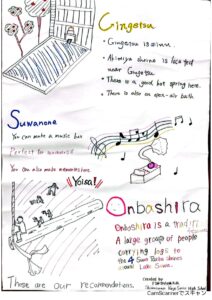 Gingetsu
• Gingetsu is
• Akimiya shrine is located
near Gingetsu
• There is a good hot spring here.
• There is also an open-air bath
Suwanone
You can make a music box
Perfect for souvenirs
You can also make memories here.
Yoisa!
Onbashira
Onbashira is a
A large group of people
carrying logs to
the 4 Suwa Taisha shrines
around Lake Suwa.
Created by
These are our recommendations.
CamScannerでスキャン